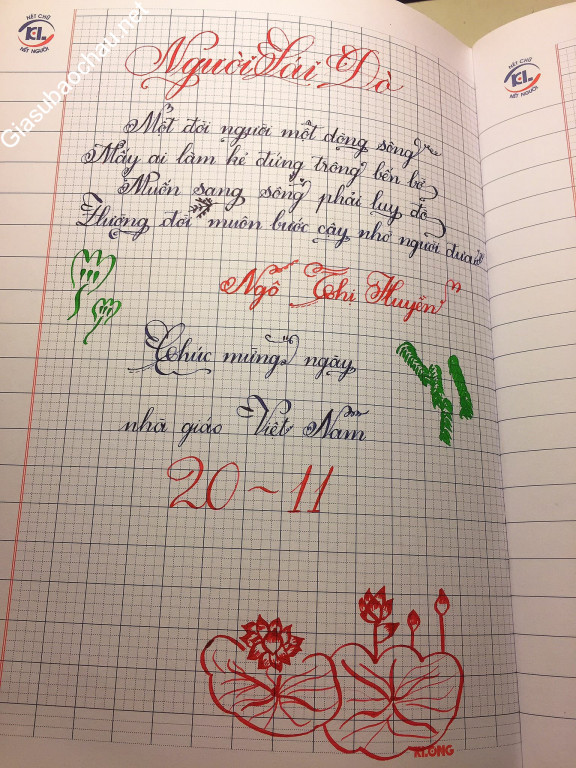 NÉT CHỮ
KL
NẾT NGƯỜI
NÉT CHỮ
KL
NẾT NGƯỜI
Giasubaochau.net
Người Lái Đò
Một đời người một dòng sông
Mấy ai làm kẻ đứng trông bến bờ
Muốn sang sông phải luỵ đò
Đường đời muôn bước cậy nhờ người đưa
Ngô Thị Huyền
Chúc mừng ngày
nhà giáo Việt Nam
20 ~ 11
KLONG